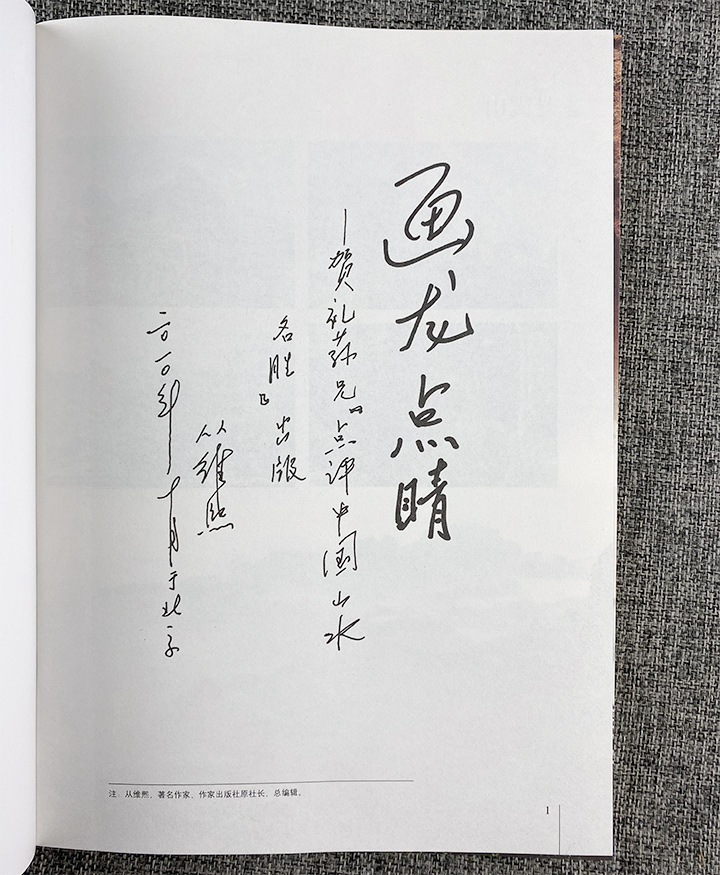 画龙点睛
—贺礼荪兄《点评中国山水
名胜》出版
从维熙
二〇一〇年十月于北京
注:从维熙,著名作家、作家出版社原社长、总编辑。
1